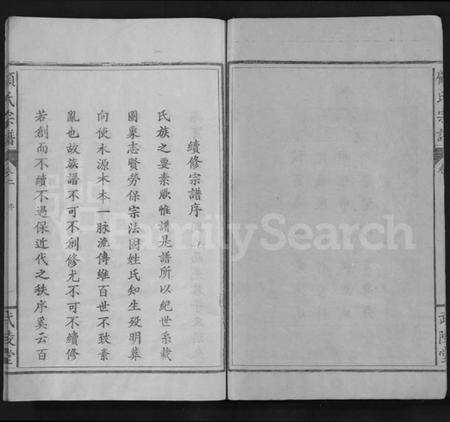 續修宗譜序
氏族之要素厥惟譜是譜所以紀世系載
圖彖志賢勞保宗法因姓氏知生歿明葬
向使水源木本一脉流傳維百世不致紊
亂也故族譜不可不創修尤不可不續修
若創而不續不過保近代之秩序奚云百
顧氏宗譜
卷二
序
武陵堂
顧氏宗譜
武陵堂
FamilySearch